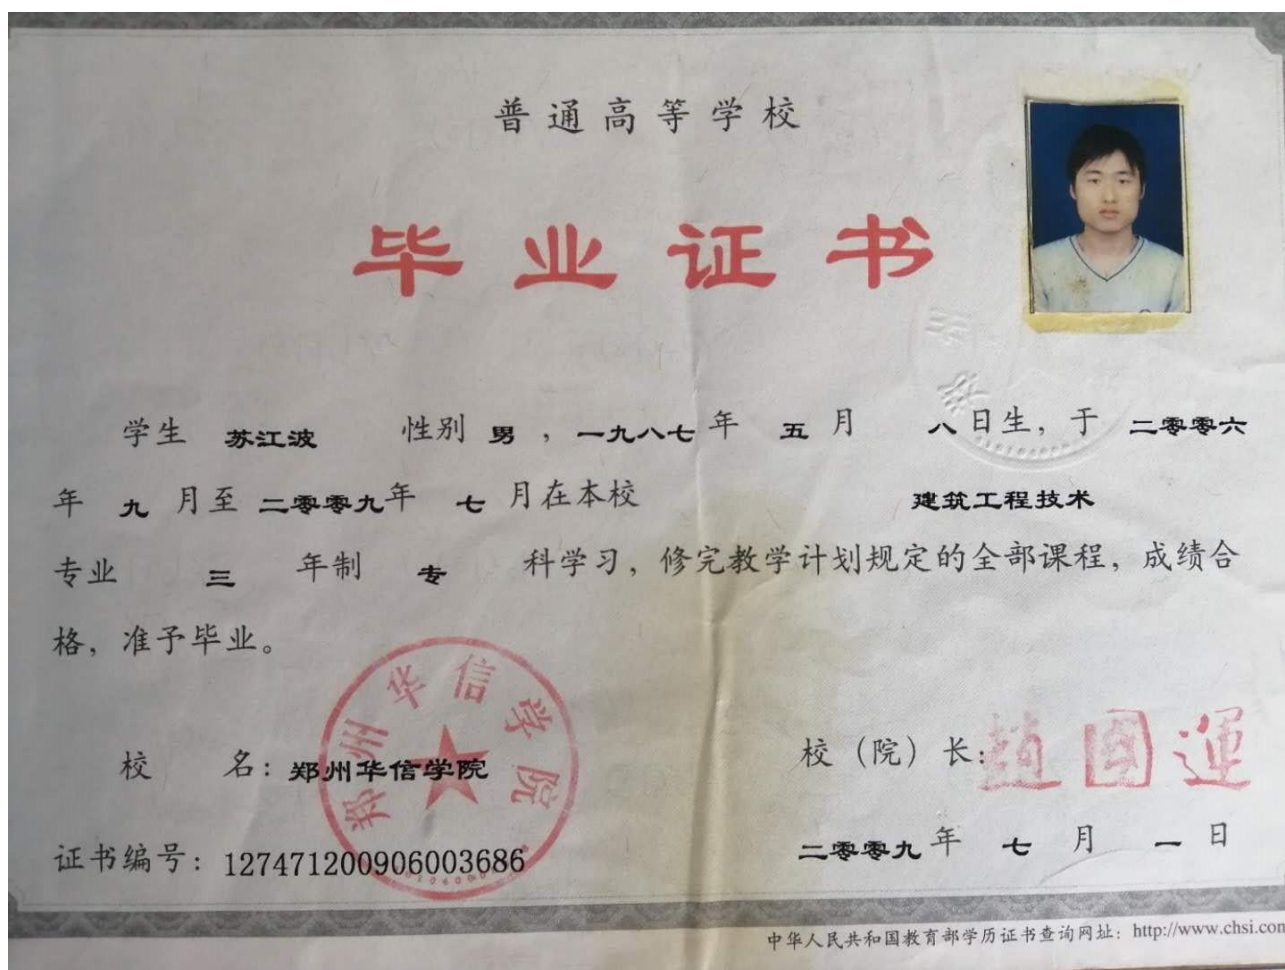 普通高等学校
毕业证书
学生 苏江波 性别 男，一九八七年 五 月 八日生，于 二零零六
年 九 月至 二零零九年 七 月在本校 建筑工程技术
专业 三 年制 专 科学习，修完教学计划规定的全部课程，成绩合
格，准予毕业。
郑州华信学院
校 名：郑州华信学院
校（院）长：趙國運
证书编号：127471200906003686
二零零九年 七 月 一 日
中华人民共和国教育部学历证书查询网址：http://www.chsi.com